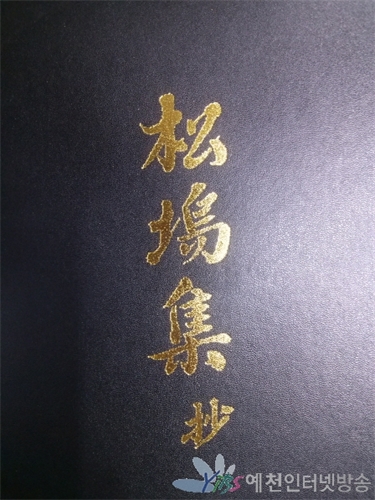 松塢集抄
예천인터넷방송